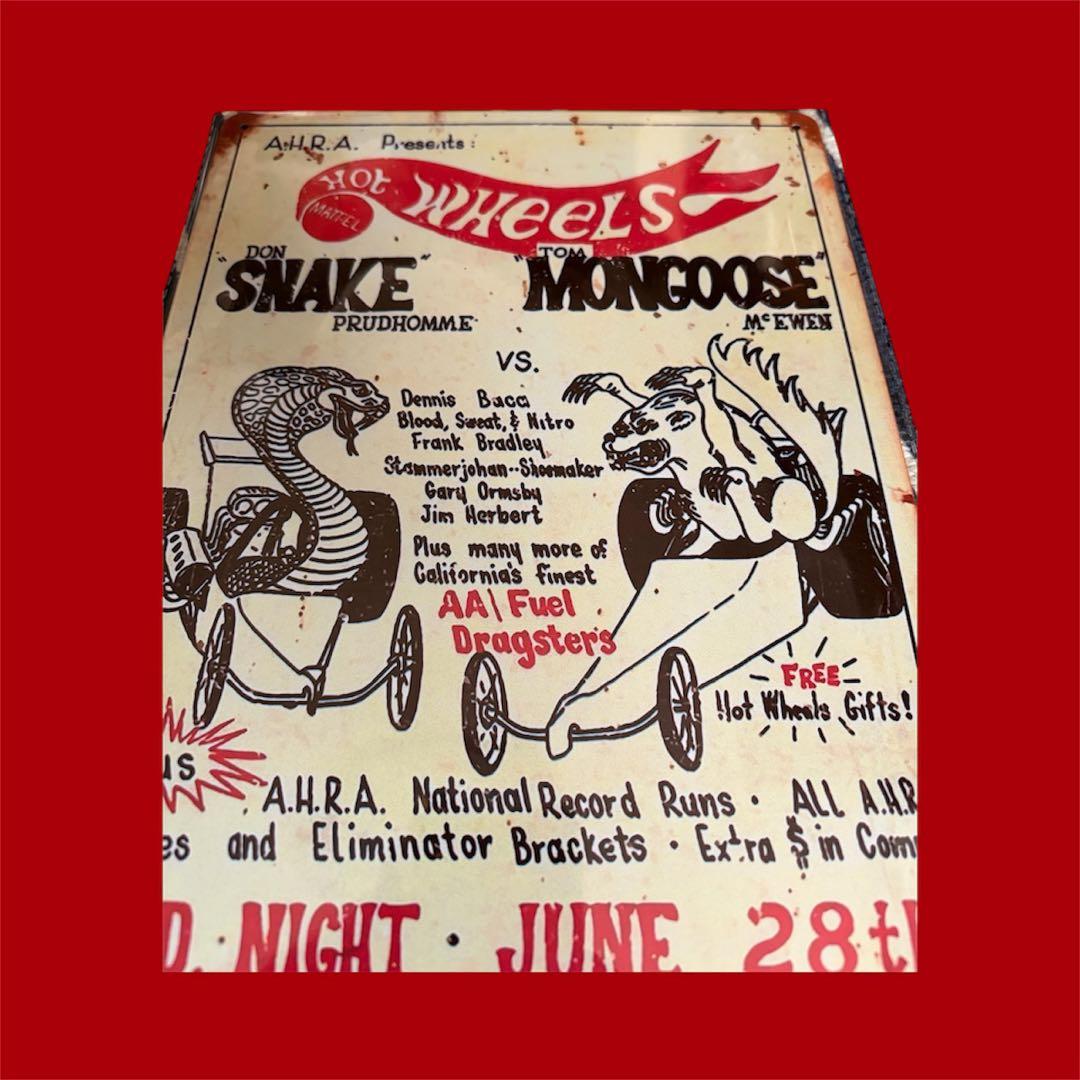 A.H.R.A. Presents:
HOT WHEELS
MATTEL
DON TOM
"SNAKE" "MONGOOSE"
PRUDHOMME McEWEN
VS.
Dennis Bucci
Blood, Sweat, & Nitro
Frank Bradley
Stammerjohan--Shoemaker
Gary Ormsby
Jim Herbert
Plus many more of
California's finest
AA\ Fuel
Dragsters
FREE
Hot Wheels Gifts!
A.H.R.A. National Record Runs · ALL A.H.R
and Eliminator Brackets · Extra $ in
D. NIGHT · JUNE 28th